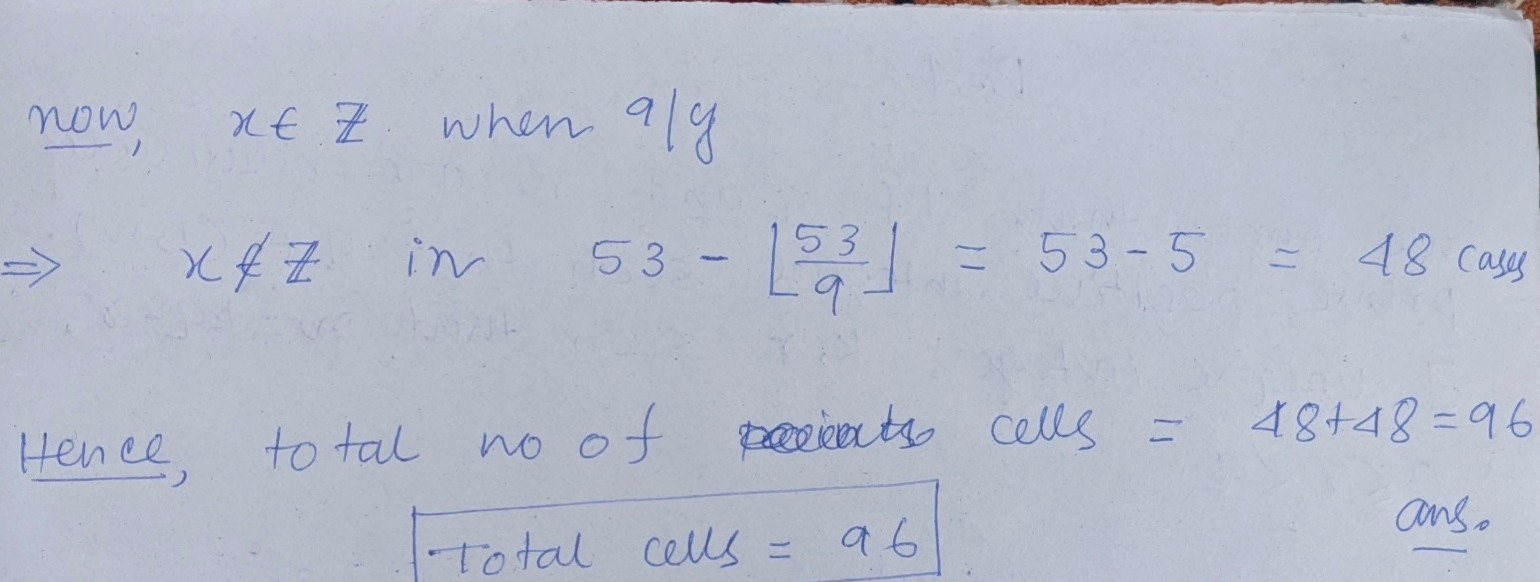 now, x ∈ Z when 9/y
⇒ x ∉ Z in 53 - ⌊53/9⌋ = 53-5 = 48 cases
Hence, total no of cells = 48+48=96
ans.
Total cells = 96